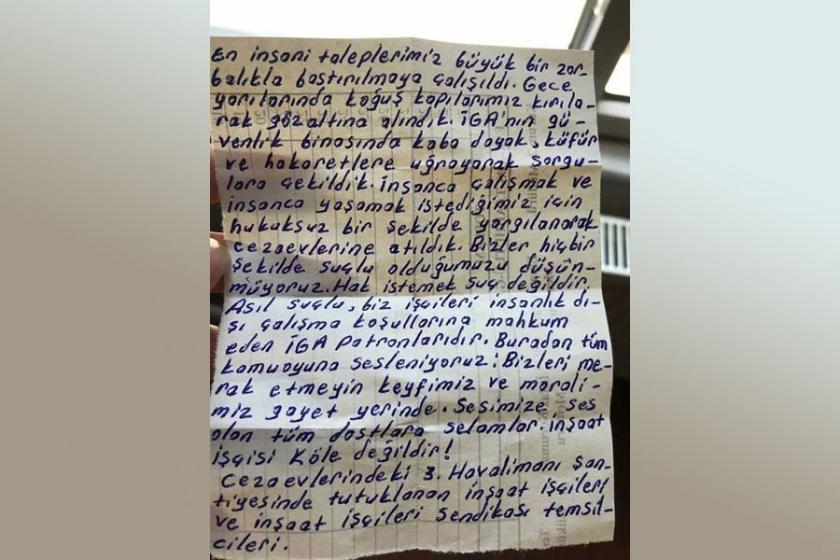 En insani taleplerimiz büyük bir zor-
balıkla bastırılmaya çalışıldı. Gece
yarılarında koğuş kapılarımız kırıla-
rak gözaltına alındık. İGA'nın gü-
venlik binasında kaba dayak, küfür
ve hakaretlere uğrayarak sorgu-
lara çekildik. İnsanca çalışmak ve
insanca yaşamak istediğimiz için
hukuksuz bir şekilde yargılanarak
cezaevlerine atıldık. Bizler hiçbir
şekilde suçlu olduğumuzu düşün-
müyoruz. Hak istemek suç değildir.
Asıl suçlu, biz işçileri insanlık dı-
şı çalışma koşullarına mahkum
eden İGA patronlarıdır. Buradan tüm
kamuoyuna sesleniyoruz: Bizleri me-
rak etmeyin keyfimiz ve morali-
miz gayet yerinde. Sesimize ses
olan tüm dostlara selamlar. İnşaat
işçisi köle değildir!
Cezaevlerindeki 3. Havalimanı şan-
tiyesinde tutuklanan inşaat işçileri
ve inşaat işçileri sendikası temsil-
cileri.